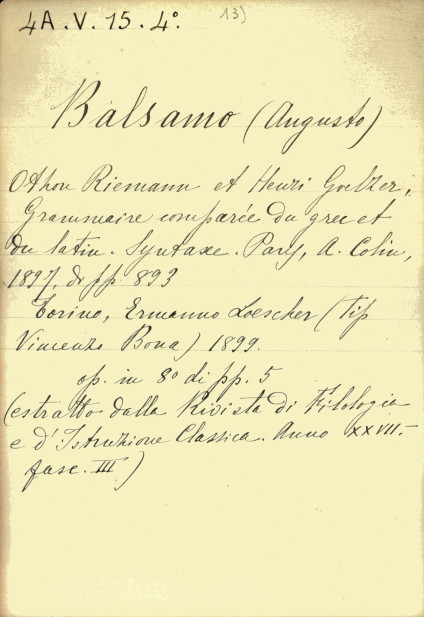 4A.V.15.4º.
13)
Balsamo (Augusto)
Othon Riemann et Henri Goelzer,
Grammaire comparée du grec et
du latin. Syntaxe. Paris, A. Colin,
1897, di pp. 893
Torino, Ermanno Loescher (Tip
Vincenzo Bona) 1899.
op. in 8º di pp. 5
(estratto dalla Rivista di Filologia
e d'Istruzione Classica. Anno XXVII.-
fasc. III)